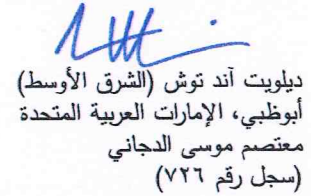 ديلويت آند توش (الشرق الأوسط)
أبوظبي، الإمارات العربية المتحدة
معتصم موسى الدجاني
(سجل رقم ٧٢٦)